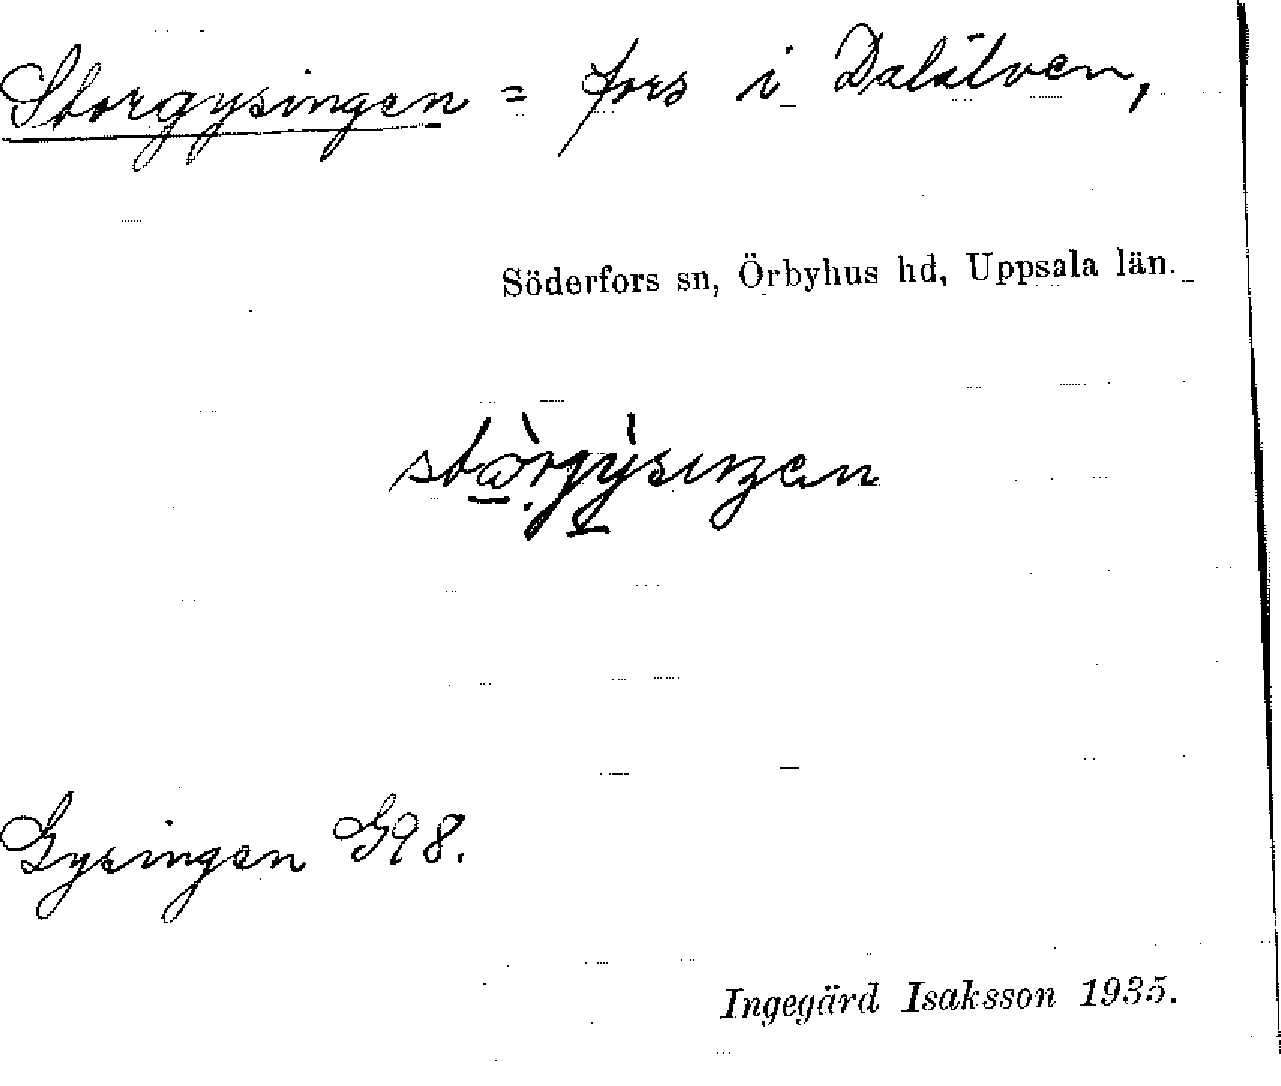 Storgysingen = fors i Dalälven,
Söderfors sn, Örbyhus hd, Uppsala län.
Gysingen G98.
Ingegärd Isaksson 1935.